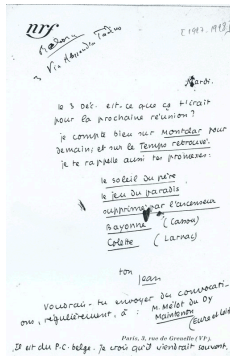 nrf
[1927-1928]
Mardi.
le 3 Déc. est-ce que ça t'irait
pour la prochaine réunion?
je compte bien sur Montclar pour
demain; et sur le Temps retrouvé.
je te rappelle aussi tes promesses:
le soleil du père
le jeu du paradis
supprimé par l'ascenseur
Bayonne (Cassou)
Colette (Larnac)
ton
Jean
Voudrais-tu envoyer des convocati-
ons, régulièrement, à: M. Mélot du Dy
Maintenon
(Eure et Loir)
Paris, 3, rue de Grenelle (VIe).
Il est du P.C. belge. je crois qu'il viendrait souvent.